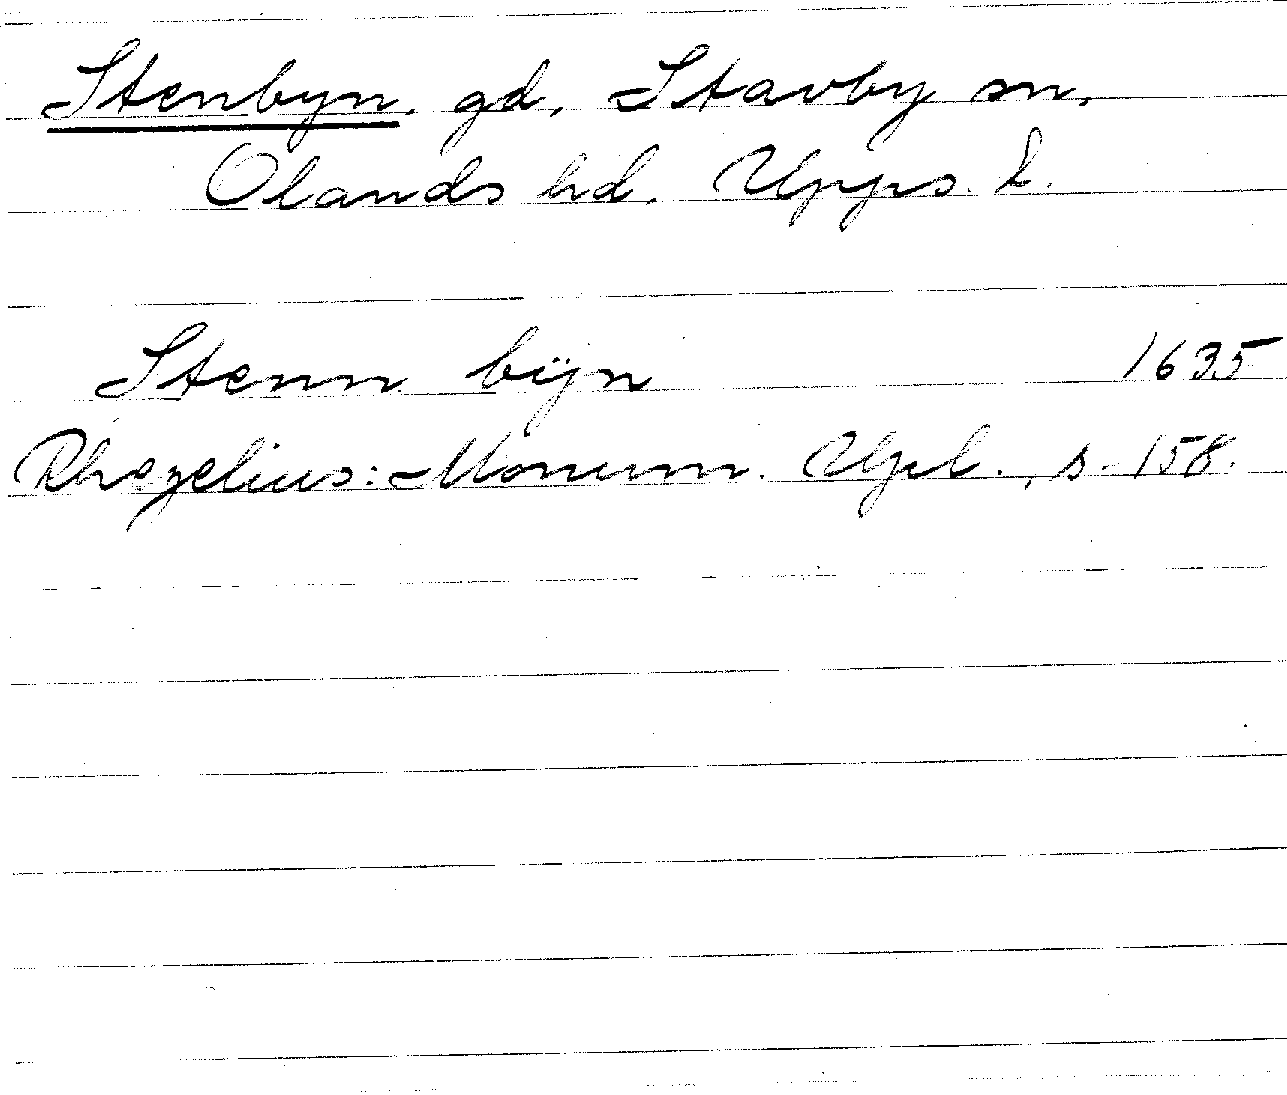 Stenbyn. gd, Stavby sn.
Olands hd. Upps. L.
Stenn bÿn 1635
Rhezelius: Monum. Upl., s. 158.